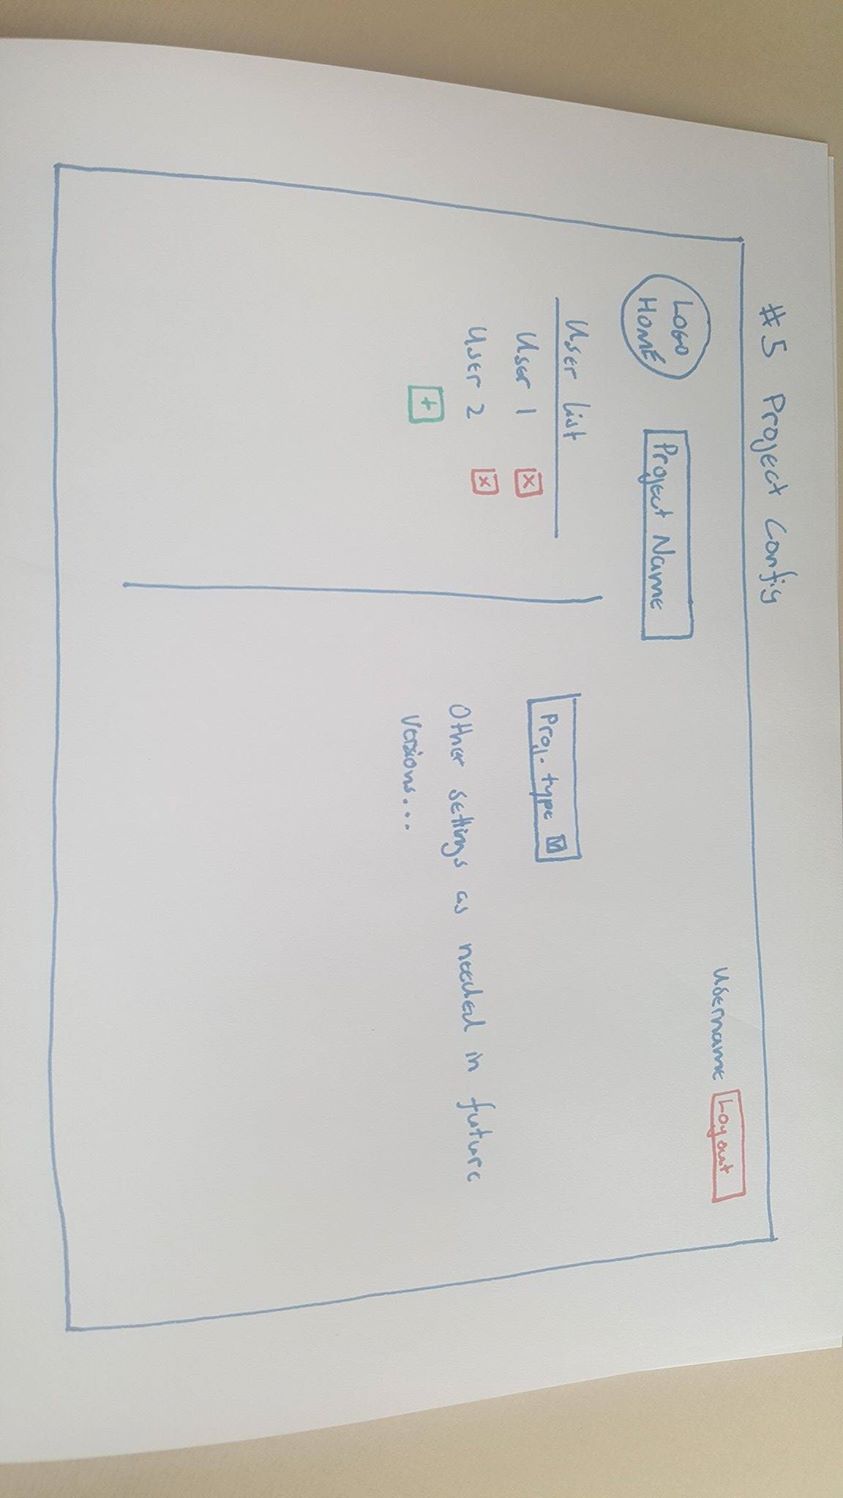 #5 Project Config
LOGO
HOME
Project Name
Username
Logout
User List
User 1
x
User 2
x
+
Proj. type
Other settings as needed in future
versions...